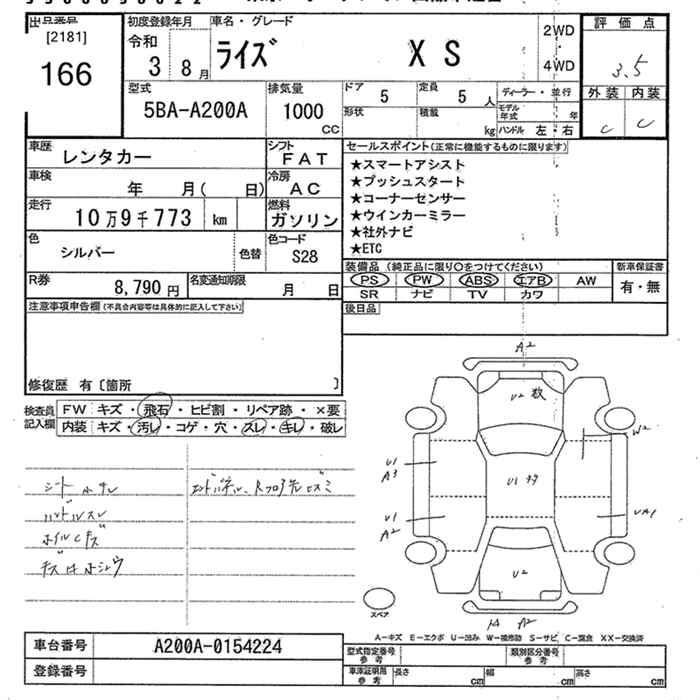 出品票
[2181]
166
初度登録年月
令和
3年 8月
車名・グレード
ライズ XS
2WD
・
4WD
評価点
3.5
外装 内装
C C
型式
5BA-A200A
排気量
1000
CC
ドア 5
定員 5人
形状
積載 kg
ディーラー・並行
モデル年式 年
ハンドル 左・右
車歴 レンタカー
シフト FAT
車検 年 月( 日)
冷房 AC
走行 10万9千773 km
燃料 ガソリン
色 シルバー
色替
色コード S28
R券 8,790円
名変通知期限 月 日
セールスポイント(正常に機能するものに限ります)
★スマートアシスト
★プッシュスタート
★コーナーセンサー
★ウインカーミラー
★社外ナビ
★ETC
装備品(純正品に限り○をつけてください)
PS PW ABS エアB AW
SR ナビ TV カワ
新車保証書
有・無
後日品
注意事項申告欄(不具合内容等は具体的に記入して下さい)
修復歴 有〔箇所 〕
検査員記入欄
FW キズ・飛石・ヒビ割・リペア跡・×要
内装 キズ・汚レ・コゲ・穴・スレ・キレ・破レ
シートホツレ
ハンドルスレ
ホイルキズ
A2
U2 数
W2
U1
A3
U1
U1
A2
UA1
U2
A2
スペア
A-キズ E-エクボ U-凹み W-補修跡 S-サビ C-腐食 XX-交換済
車台番号 A200A-0154224
登録番号
型式指定番号
参考
類別区分番号
参考
車庫証明用
参考
長さ cm
幅 cm
高さ cm